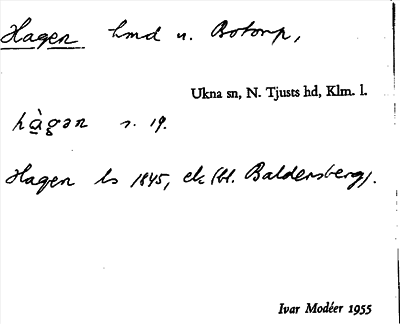 Hagen hmd u. Botorp,
Ukna sn, N. Tjusts hd, Klm. l.
hàgən s. 19.
Hagen ls 1845, ek (bl. Baldersberg).
Ivar Modéer 1955